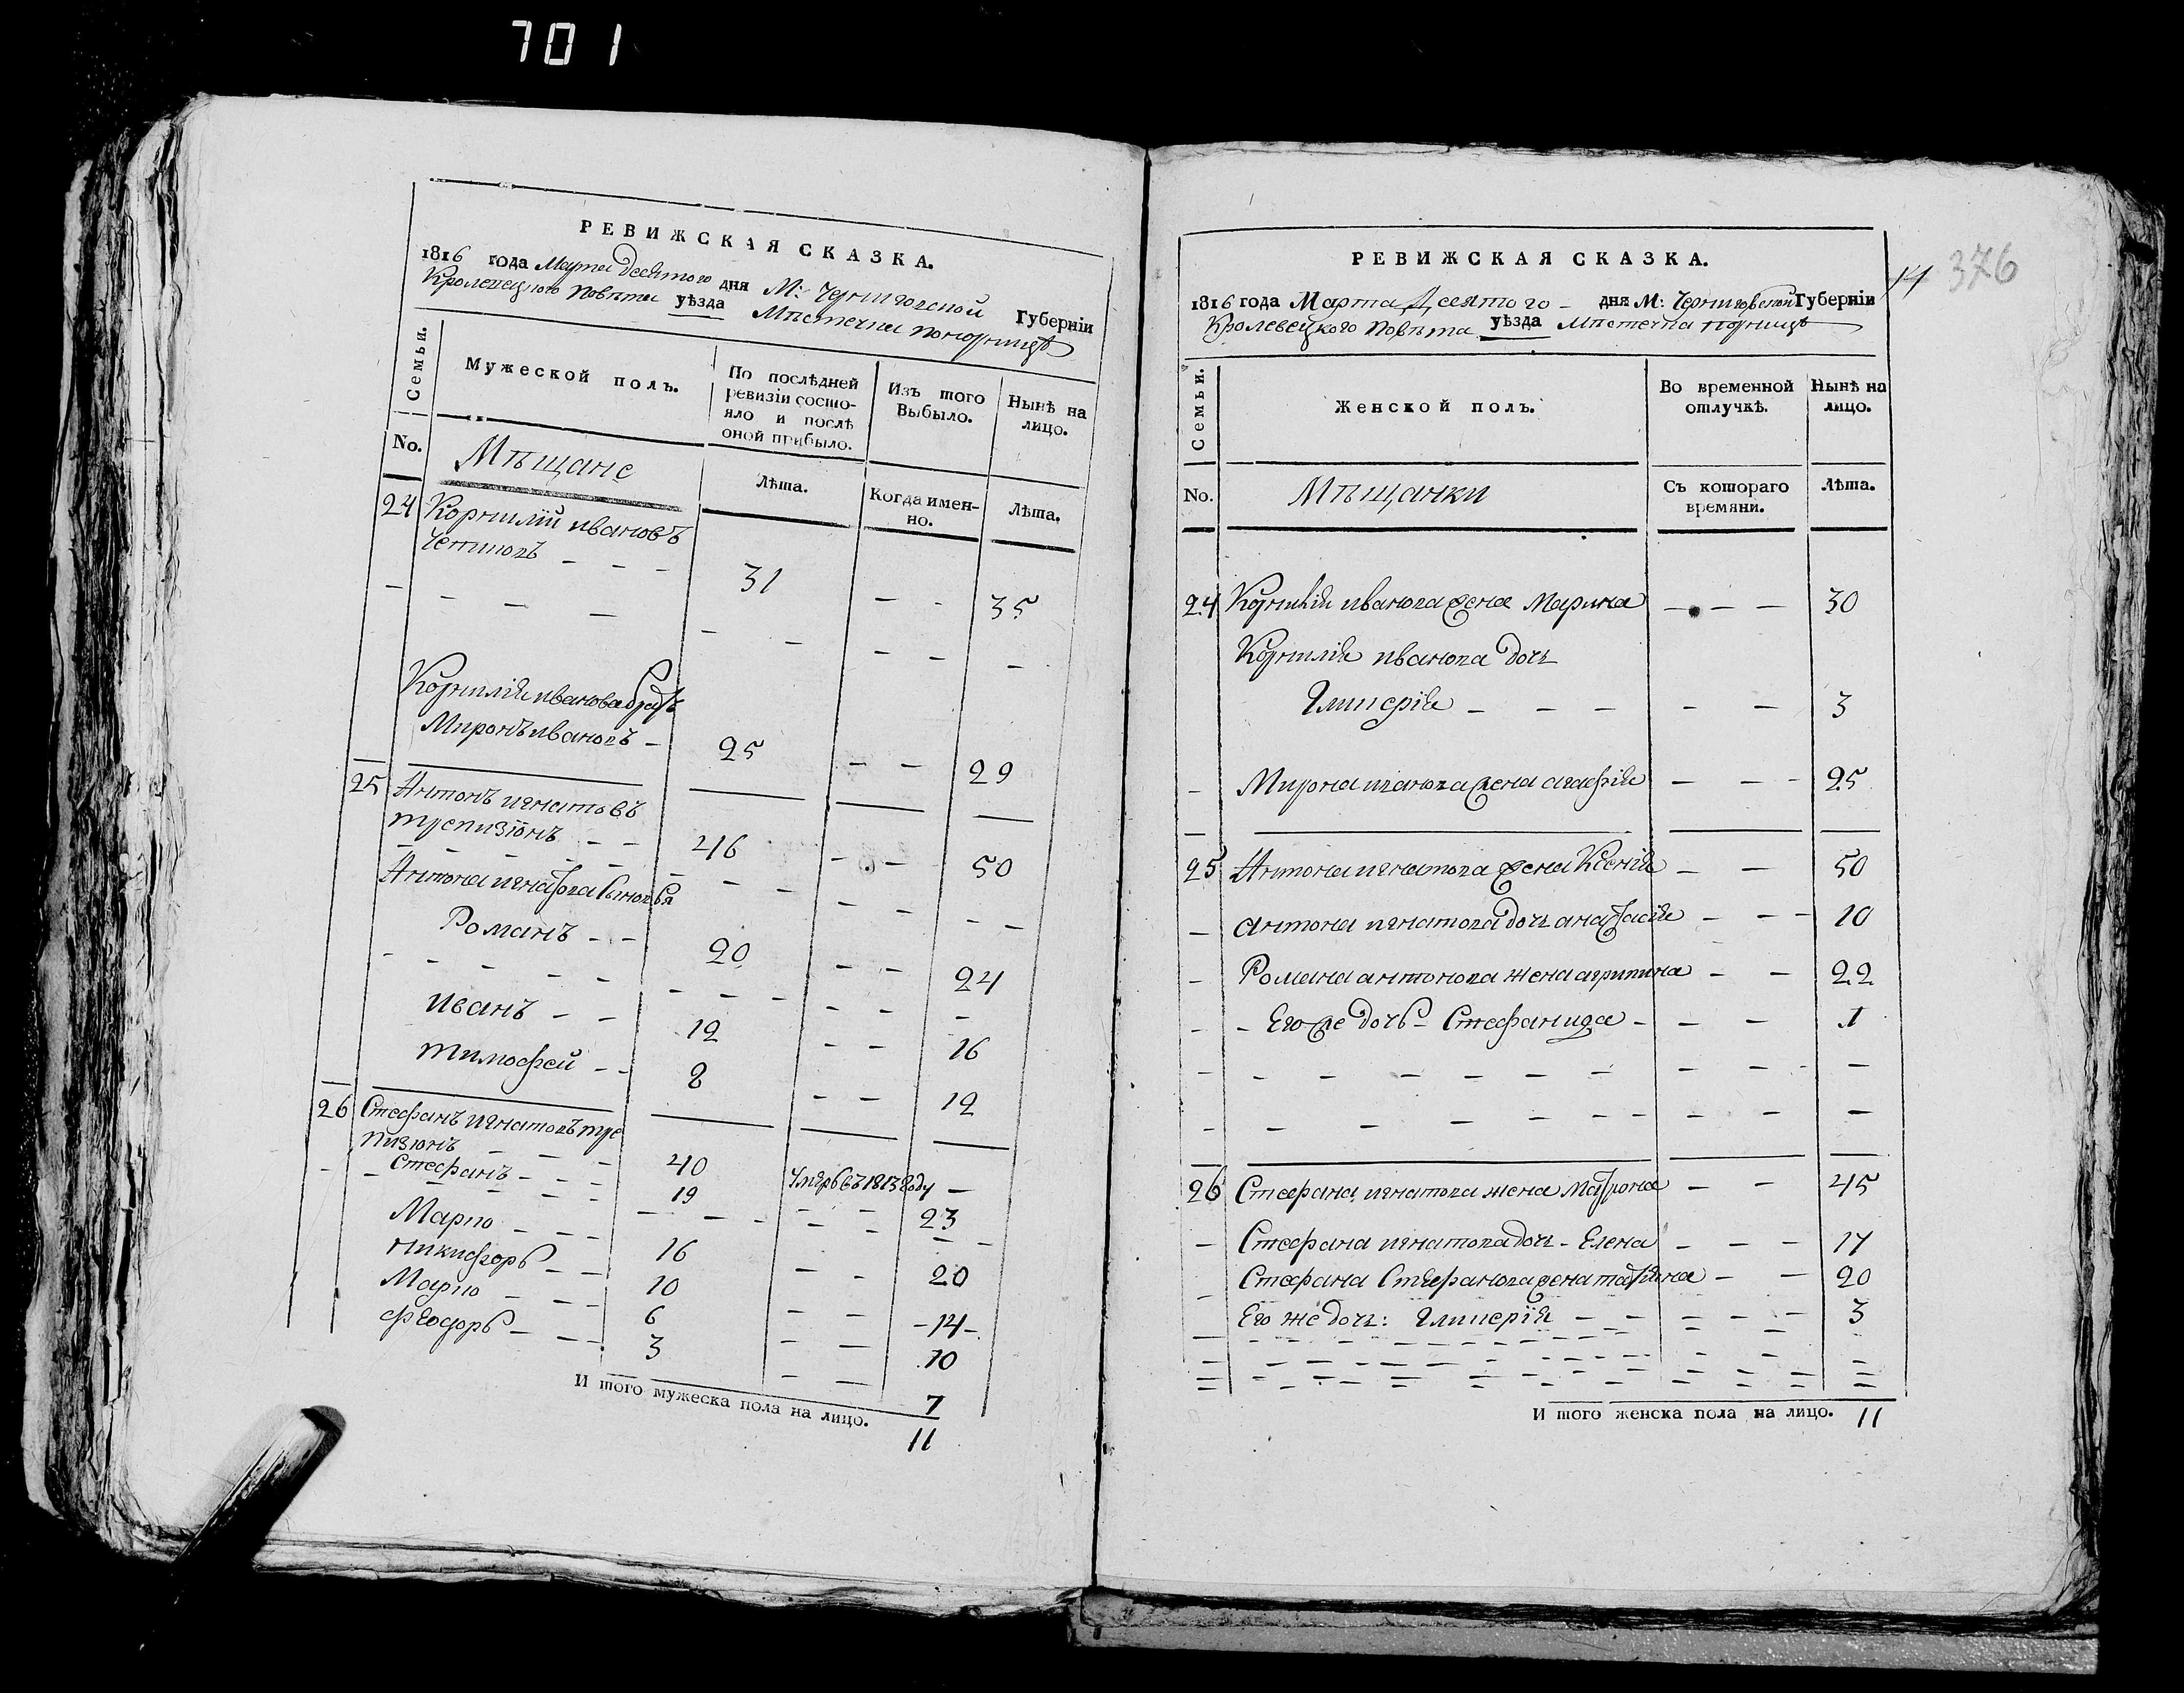 701
РЕВИЖСКАЯ СКАЗКА.
1816 года Марта десятого дня М: Черниговской Губерніи
Кролевецкого повѣта уѣзда Мѣстечка понорницѣ
Семьи.
Мужеской полъ.
По послѣдней ревизіи состояло и послѣ оной прибыло.
Изъ того Выбыло.
Нынѣ на лицо.
No.
Мѣщане
Лѣта.
Когда именно.
Лѣта.
24 Корнилій ивановъ
31 35
Корнилія иванова братъ
Миронъ ивановъ 25 29
25 Антонъ игнатовъ
трепизонъ 46 50
Антона игнатова Сыновья
Романъ 20 24
иванъ 12 16
тимофей 8 12
26 Стефанъ игнатовъ тре
пизонъ 40 умръ въ 1813 году
Стефанъ 19 23
Марко 16 20
Никифоръ 10 14
Марко 6 10
феодоръ 3 7
И того мужеска пола на лицо. 11
14 376
РЕВИЖСКАЯ СКАЗКА.
1816 года Марта Десятого дня М: Черниговской Губерніи
Кролевецкого повѣта уѣзда Мѣстечка
Семьи.
Женской полъ.
Во временной отлучкѣ.
Нынѣ на лицо.
No.
Мѣщанки
Съ котораго времяни.
Лѣта.
24 Корнилія иванова жена Марина 30
Корнилія иванова дочь
Гликерія 3
Мирона иванова жена агафія 25
25 Антона игнатова жена Ксенія 50
антона игнатова дочь анастасія 10
Романа антонова жена агрипина 22
Его же дочь Стефанида 1
26 Стефана игнатова жена Матрона 45
Стефана игнатова дочь Елена 17
Стефана Стефанова жена татіяна 20
Его же дочь: Гликерія 3
И того женска пола на лицо. 11